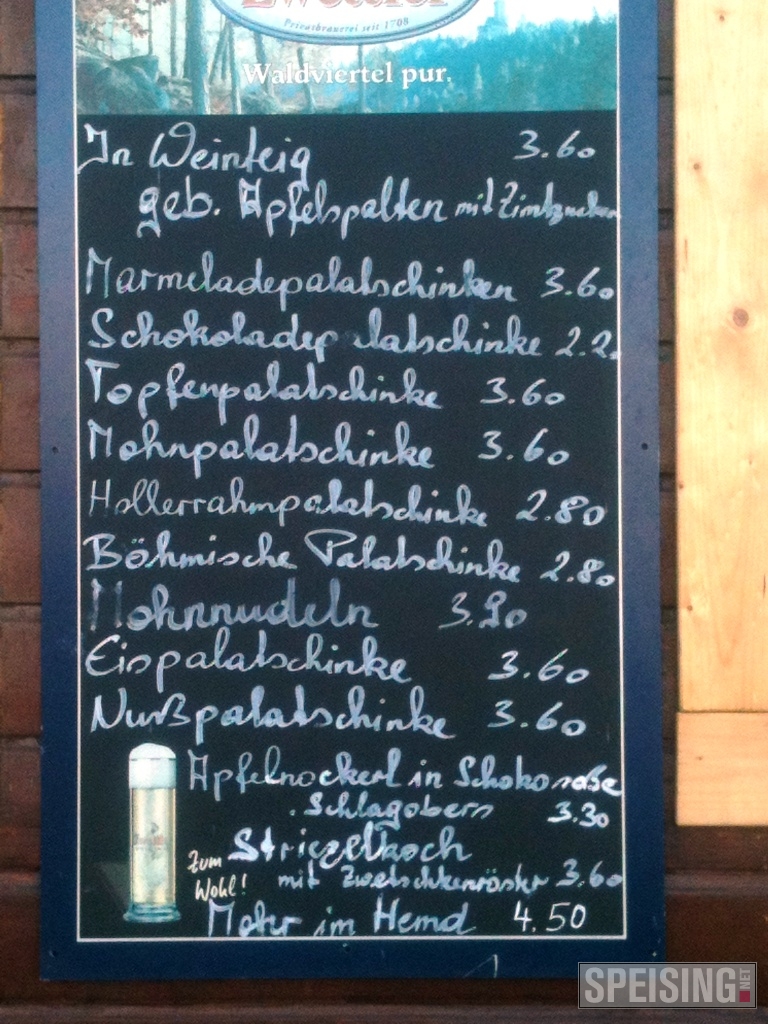 Zwettler
Privatbrauerei seit 1708
Waldviertel pur.
In Weinteig 3.60
geb. Apfelspalten mit Zimtzucker
Marmeladepalatschinken 3.60
Schokoladepalatschinke 2.2
Topfenpalatschinke 3.60
Mohnpalatschinke 3.60
Hollerrahmpalatschinke 2.80
Böhmische Palatschinke 2.80
Mohnnudeln 3.20
Eispalatschinke 3.60
Nußpalatschinke 3.60
Apfelnockerl in Schokosoße
Schlagobers 3.30
Striezelkoch
mit Zwetschkenröster 3.60
Zum Wohl!
Mohr im Hemd 4.50
SPEISING.NET